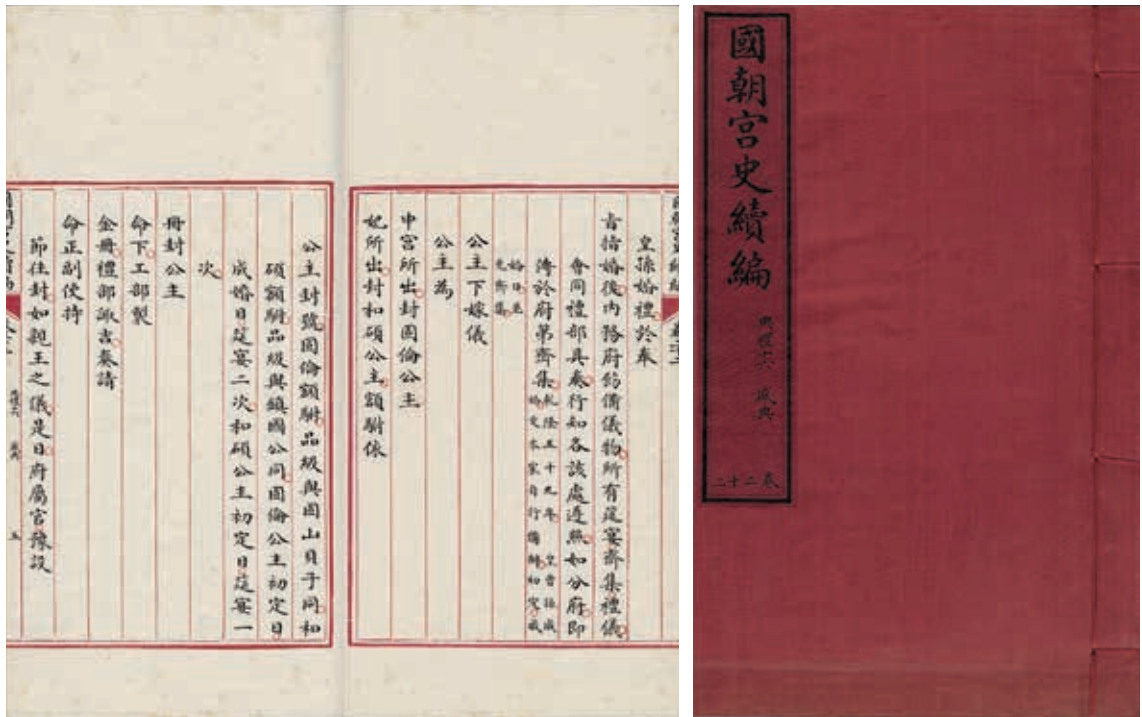 國朝宮史續編
典禮十六 盛典
卷二十二
皇孫婚禮於奉
旨指婚後內務府飭備儀物所有筵宴齊集禮儀
會同禮部具奏行知各該處遵照如分府即
溥於府第齊集乾隆五十九年 皇曾孫成
婚父本家自行備辦初定成
婚日並
免齊集
公主下嫁儀
公主為
中宮所出封固倫公主
妃所出封和碩公主額駙依
公主封號固倫額駙品級與固山貝子同和
碩額駙品級與鎮國公同固倫公主初定日
成婚日筵宴二次和碩公主初定日筵宴一
次
冊封公主
命下工部製
金冊禮部諏吉奏請
命正副使持
節往封如親王之儀是日府屬官豫設
五